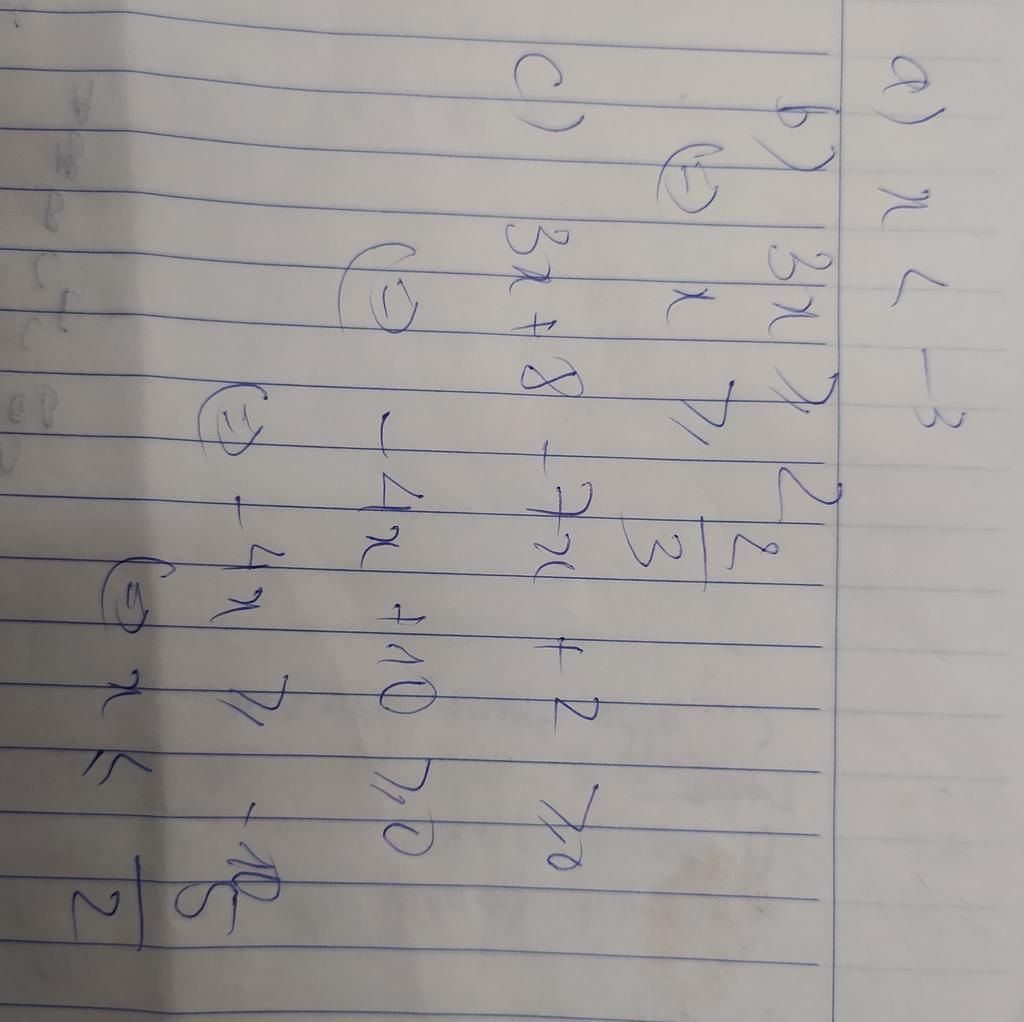 a) x < -3
b) 3x > 2
⇔ x ⩾ 2/3
c) 3x + 8 - 7x + 2 ⩾ 0
⇔ - 4x + 10 ⩾ 0
⇔ - 4x ⩾ - 10
⇔ x ⩽ 5/2